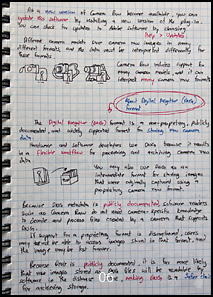 As a new version of Camera Raw become available, you can
update this software by installing a new version of the plug-in.
You can check for updates to Adobe software by choosing
Help > Updates
Different camera models save camera raw images in many
different formats, and the data must be interpreted differently for
these formats.
Camera Raw includes support for
many camera models, and it can
interpret many camera raw formats
About Digital Negative (DNG)
format
The Digital Negative (DNG) format is a non-proprietary, publicly
documented, and widely supported format for storing raw camera
data.
Hardware and software developers use DNG because it results
in a flexible workflow for processing and archiving camera raw
data.
You may also use DNG as an
intermediate format for storing images
that were originally captured using a
proprietary camera raw format.
Because DNG metadata is publicly documented, software readers
such as Camera Raw do not need camera-specific knowledge
to decode and process files created by a camera that supports
DNG.
If support for a proprietary format is discontinued, users
may not be able to access images stored in that format, and
the images may be lost forever.
Because DNG is publicly documented, it is far more likely
that raw images stored as DNG files will be readable by
software in the distant future, making DNG a safer choice
for archival storage.
06